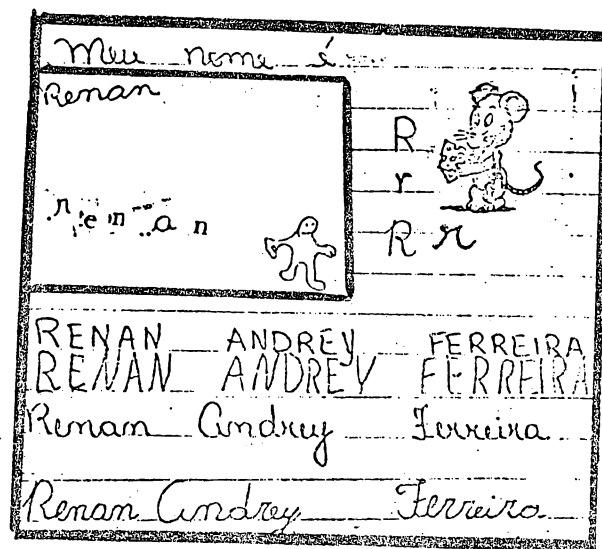 Meu nome é
Renan
R
r
renan
R r
RENAN ANDREY FERREIRA
RENAN ANDREY FERREIRA
Renan Andrey Ferreira
Renan Andrey Ferreira